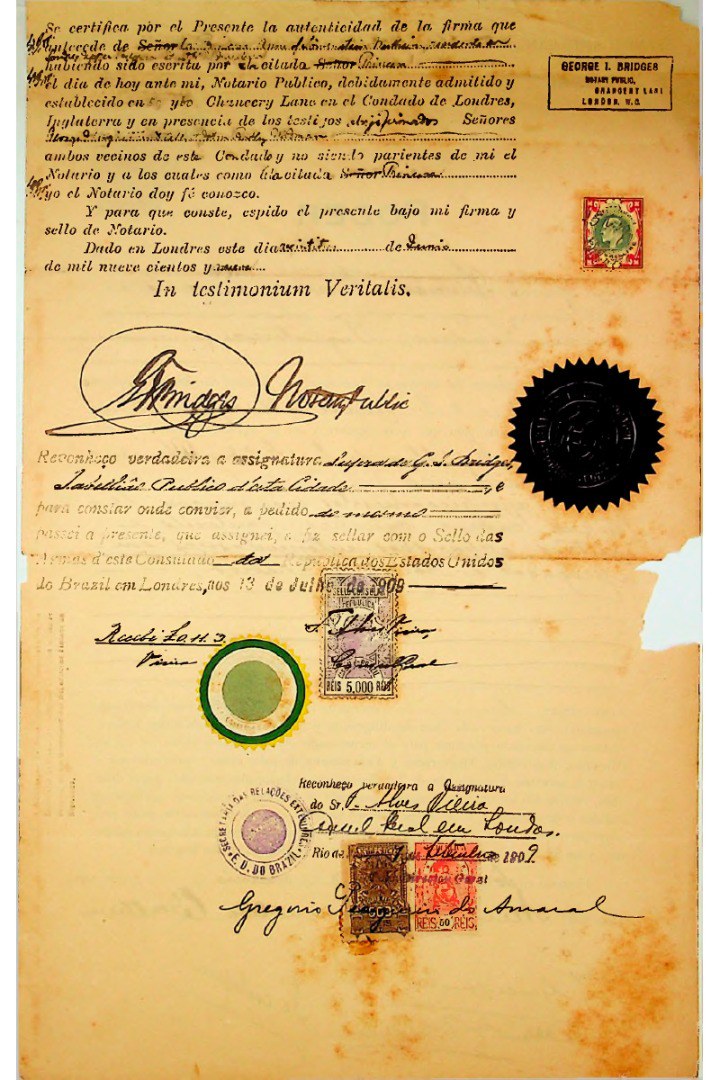 Se certifica por el Presente la autenticidad de la firma que
antecede de Señor la
habiendo sido escrita por la citada Señor Princesa
el dia de hoy ante mi, Notario Publico, debidamente admitido y
establecido en Chancery Lane en el Condado de Londres,
Inglaterra y en presencia de los testigos Señores
ambos vecinos de este Condado y no siendo parientes de mi el
Notario y a los cuales como á la citada Señor Princesa
yo el Notario doy fé conozco.
Y para que conste, espido el presente bajo mi firma y
sello de Notario.
Dado en Londres este dia de Junio
de mil nueve cientos y nueve
In testimonium Veritatis.
GEORGE I. BRIDGES
NOTARY PUBLIC,
LONDON. W.C.
G I Bridges Notary Public
Reconheço verdadeira a assignatura supra de G. I. Bridges,
Tabellião Publico d'esta Cidade e
para constar onde convier, a pedido do mesmo
passei a presente, que assignei, e fiz sellar com o Sello das
Armas d'este Consulado da Republica dos Estados Unidos
do Brazil em Londres, nos 13 de Julho de 1909
Recebi
Vieira
F. Alves Vieira
Consul Geral
REIS 5,000 REIS
Reconheço verdadeira a Assignatura
do Sr. F. Alves Vieira
Consul Geral em Londres.
Rio de 1909
Director Geral
SECRETARIA DAS RELAÇÕES EXTERIORES
E. U. DO BRAZIL
REIS 50 REIS
Gregorio do Amaral